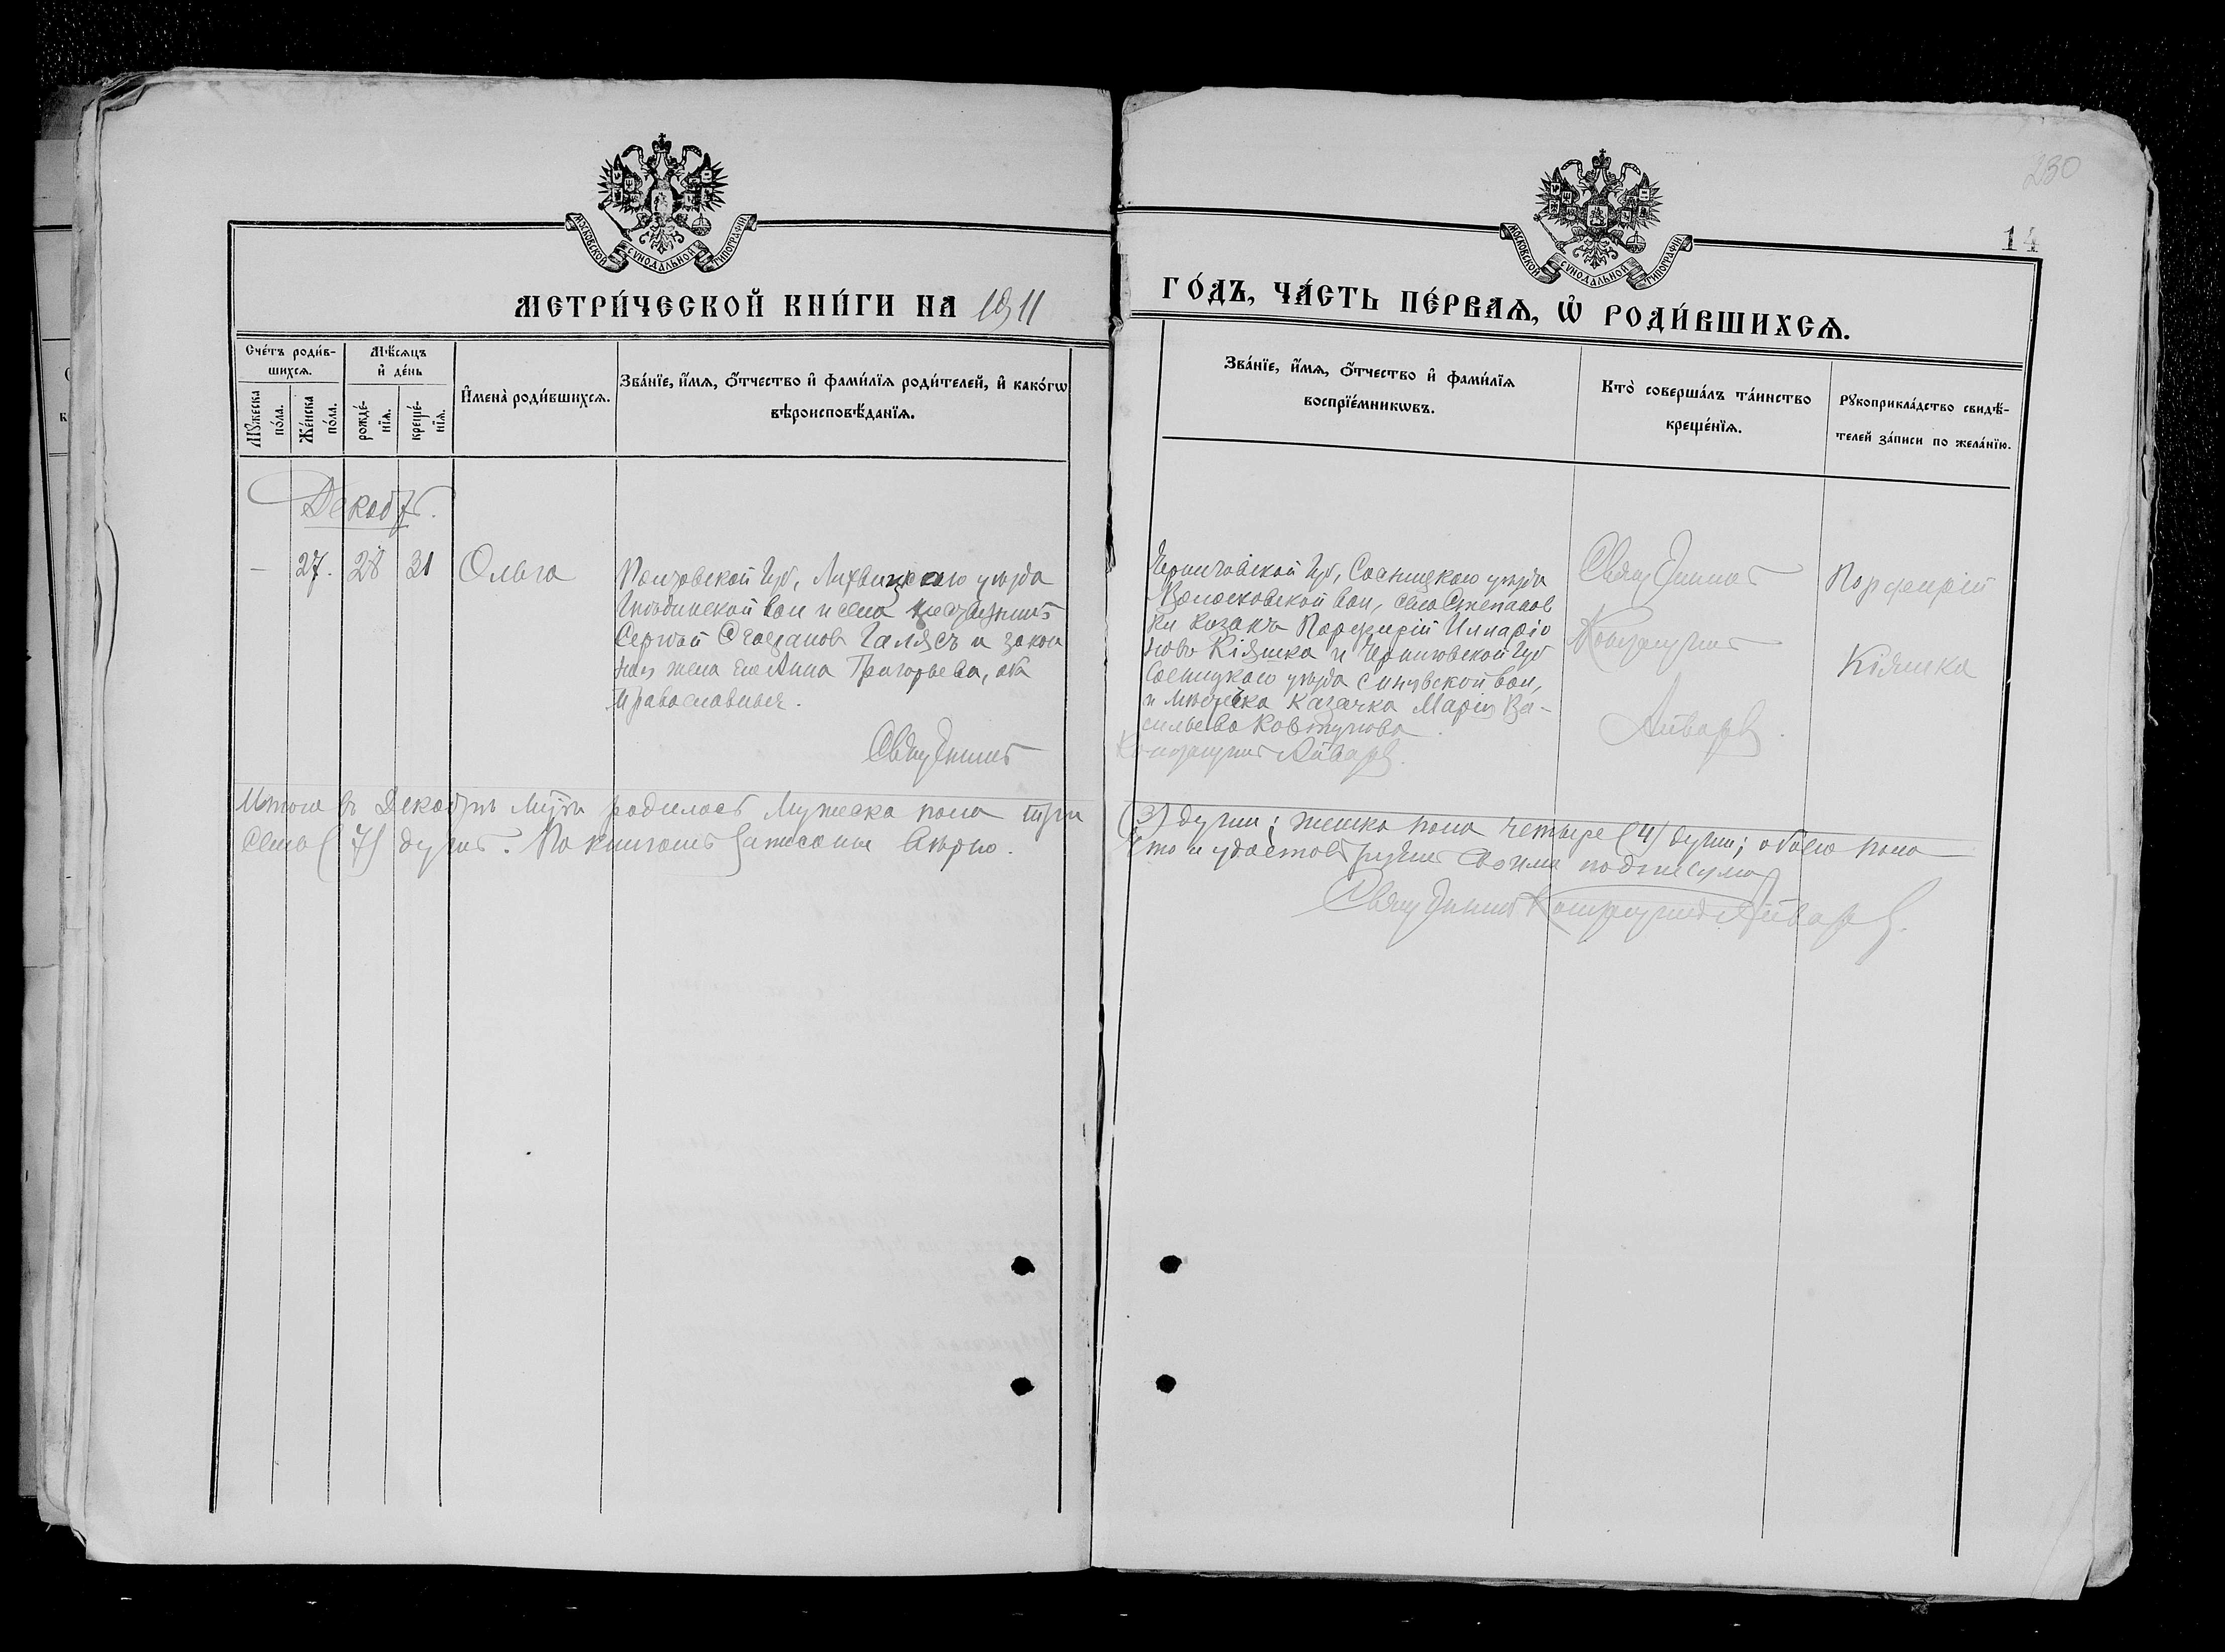 230
14
МОСКОВСКОЙ СѴНОДАЛЬНОЙ ТИПОГРАФІИ
МОСКОВСКОЙ СѴНОДАЛЬНОЙ ТИПОГРАФІИ
МЕТРИ́ЧЕСКОЙ КНИ́ГИ НА 1911
ГО́ДЪ, ЧА́СТЬ ПЕ́РВАѦ, Ѡ҆ РОДИ́ВШИХСѦ.
Сче́тъ роди́в-
шихсѧ.
Мꙋ́жеска по́ла.
Же́нска по́ла.
Мѣ́сѧцъ
и҆ де́нь
рожде́-нїѧ.
креще́-нїѧ.
И҆мена̀ роди́вшихсѧ.
Зва́нїе, и҆́мѧ, ѻ҆́тчество и҆ фами́лїѧ роди́телей, и҆ како́гѡ
вѣроисповѣ́данїѧ.
Зва́нїе, и҆́мѧ, ѻ҆́тчество и҆ фами́лїѧ
воспрїе́мникѡвъ.
Кто̀ соверша́лъ та́инство
креще́нїѧ.
Рꙋкоприкла́дство свидѣ́-
телей за́писи по жела́нїю.
Декабрь.
— 27. 28 31 Ольга
Полтавской Губ, Лохвицкаго уѣзда
вол и села
Сергѣй Стефановъ Галясъ и закон
ная жена его Анна Григорьева, оба
православные.
Священникъ
Черниговской Губ, Сосницкаго уѣзда
Волосковской вол, села Степанов
ки козакъ Порфирій Илларіо
новъ Кіяшка и Черниговской Губ
Сосницкаго уѣзда Синявской вол,
и мѣстечка казачка Марія Ва-
сильева Ковтунова
Айваровъ.
Священникъ
Айваровъ.
Порфирій
Кіяшка
Итого въ Декабрѣ м-цѣ родилось мужеска пола три
(3) души; женска пола четыре (4) души; обоего пола
семь (7) душъ. По книгамъ записаны вѣрно.
что и удостовѣряемъ своимъ подписомъ
Священникъ Айваровъ.